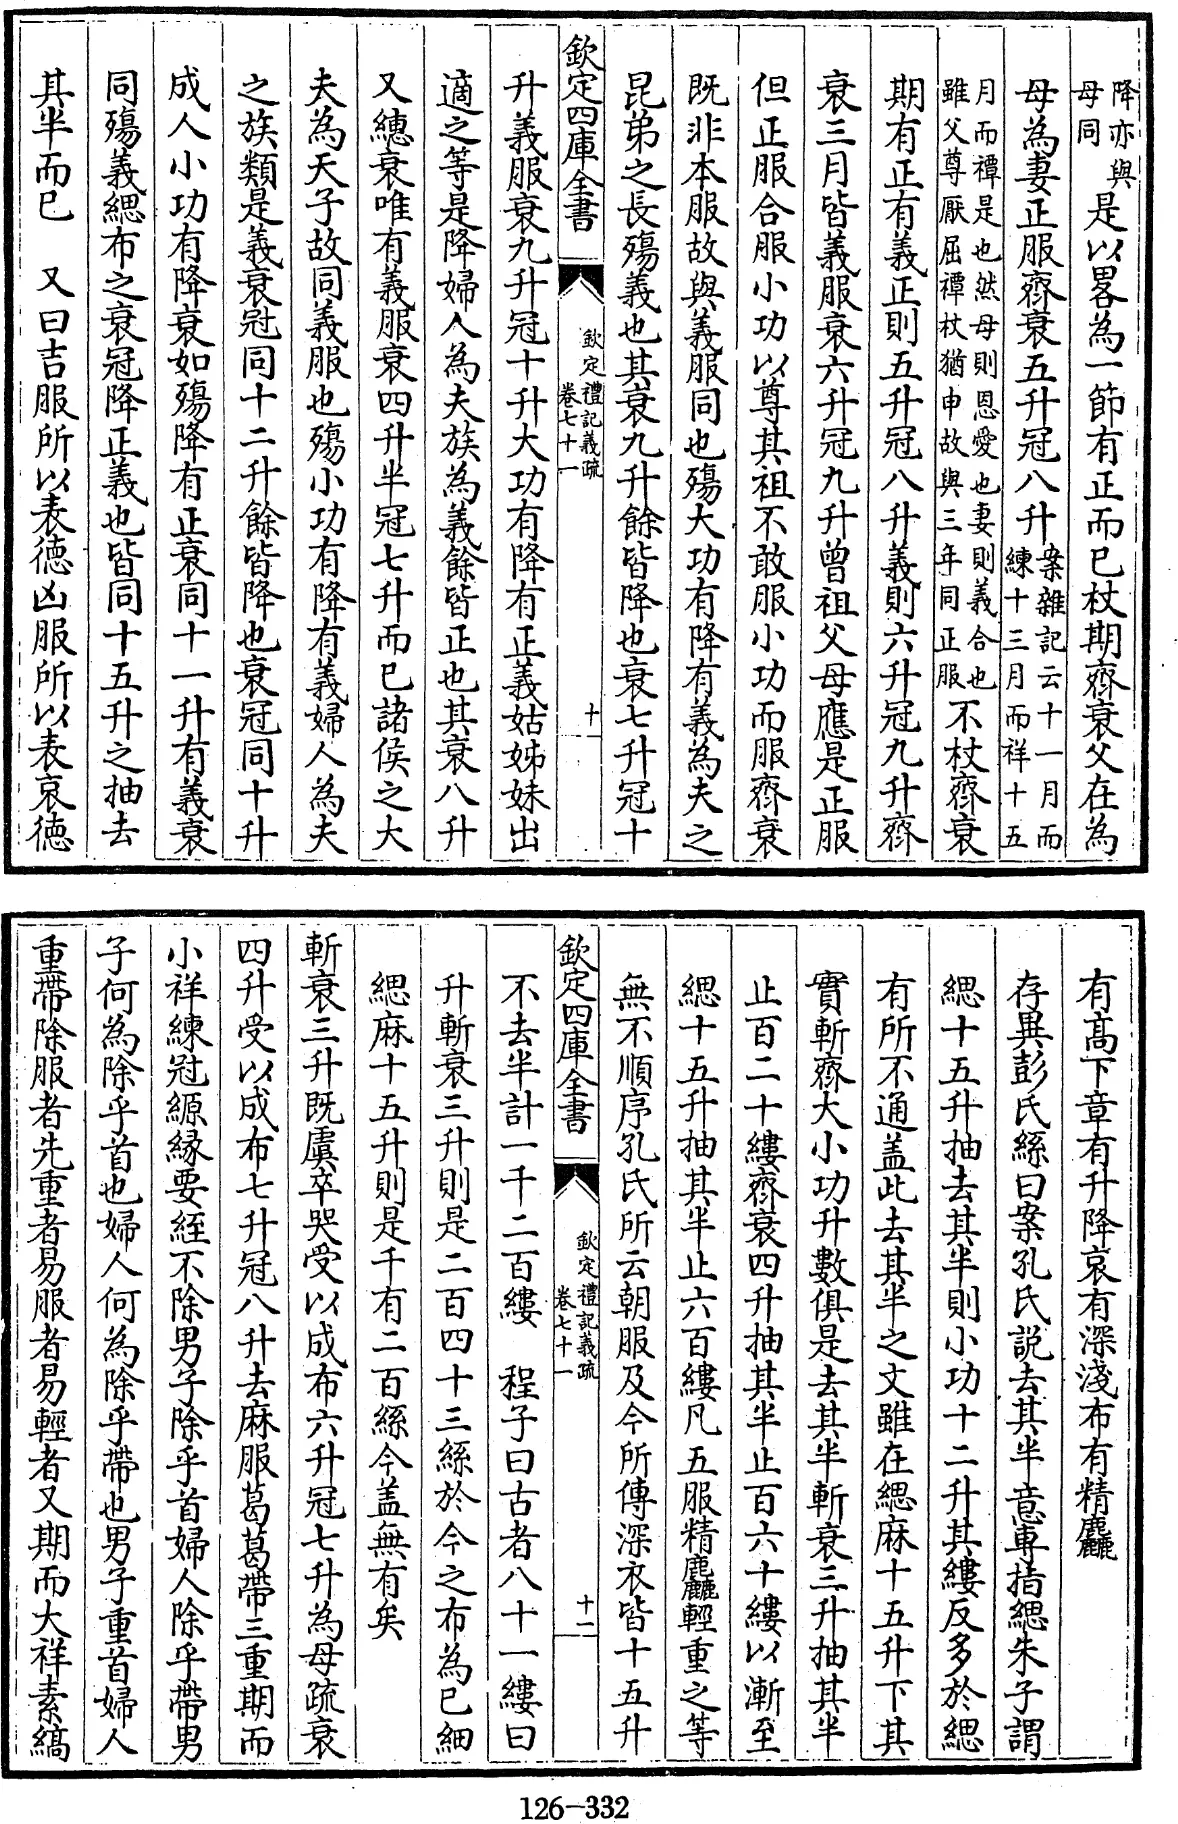 降亦與母同是以畧為一節有正而已杖期齊衰父在為
母為妻正服齊衰五升冠八升案雜記云十一月而練十三月而祥十五
月而禫是也然母則恩愛也妻則義合也雖父尊厭屈禫杖猶申故與三年同正服不杖齊衰
期有正有義正則五升冠八升義則六升冠九升齊
衰三月皆義服衰六升冠九升曾祖父母應是正服
但正服合服小功以尊其祖不敢服小功而服齊衰
既非本服故與義服同也殤大功有降有義為夫之
昆弟之長殤義也其衰九升餘皆降也衰七升冠十
欽定四庫全書
欽定禮記義疏
卷七十一
十一
升義服衰九升冠十升大功有降有正義姑姊妹出
適之等是降婦人為夫族為義餘皆正也其衰八升
又繐衰唯有義服衰四升半冠七升而已諸侯之大
夫為天子故同義服也殤小功有降有義婦人為夫
之族類是義衰冠同十二升餘皆降也衰冠同十升
成人小功有降衰如殤降有正衰同十一升有義衰
同殤義緦布之衰冠降正義也皆同十五升之抽去
其半而已 又曰吉服所以表德凶服所以表哀德
有高下章有升降哀有深淺布有精麤
存異彭氏絲曰案孔氏説去其半意專指緦朱子謂
緦十五升抽去其半則小功十二升其縷反多於緦
有所不通盖此去其半之文雖在緦麻十五升下其
實斬齊大小功升數俱是去其半斬衰三升抽其半
止百二十縷齊衰四升抽其半止百六十縷以漸至
緦十五升抽其半止六百縷凡五服精麤輕重之等
無不順序孔氏所云朝服及今所傳深衣皆十五升
欽定四庫全書
欽定禮記義疏
卷七十一
十二
不去半計一千二百縷 程子曰古者八十一縷曰
升斬衰三升則是二百四十三絲於今之布為已細
緦麻十五升則是千有二百絲今盖無有矣
斬衰三升既虞卒哭受以成布六升冠七升為母疏衰
四升受以成布七升冠八升去麻服葛葛帶三重期而
小祥練冠縓縁要絰不除男子除乎首婦人除乎帶男
子何為除乎首也婦人何為除乎帶也男子重首婦人
重帶除服者先重者易服者易輕者又期而大祥素縞
126-332